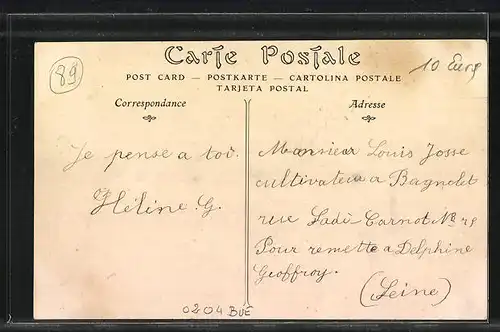 89
Carte Postale
10 Euro
POST CARD — POSTKARTE — CARTOLINA POSTALE
TARJETA POSTAL
Correspondance
Je pense a toi.
Hélène. G.
Adresse
Monsieur Louis Josse
cultivateur a Bagnolet
rue Sadi-Carnot No
Pour remette a Delphine
Geoffroy.
(Seine)
0204 BUE